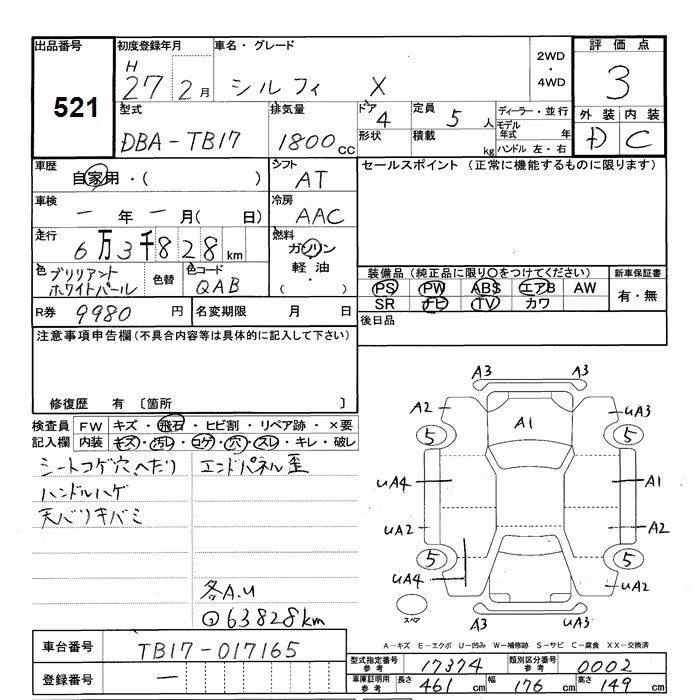 出品番号 初度登録年月 車名・グレード 評価点
521 H 27 2月 シルフィ X 2WD・4WD 3
型式 排気量 ドア 定員 ディーラー・並行 外装 内装
DBA-TB17 1800cc 4 5人 モデル年式 年 D C
形状 積載 kg ハンドル 左・右
車歴 自家用・( ) シフト AT セールスポイント (正常に機能するものに限ります)
車検 一年一月( 日) 冷房 AAC
走行 6万3千828km 燃料 ガソリン・軽油・( )
色 ブリリアントホワイトパール 色替 色コード QAB 装備品 (純正品に限り○をつけてください) 新車保証書
PS PW ABS エアB AW 有・無
SR ナビ TV カワ
R券 9980円 名変期限 月 日 後日品
注意事項申告欄(不具合内容等は具体的に記入して下さい)
修復歴 有 〔箇所 〕
検査員 FW キズ・飛石・ヒビ割・リペア跡・×要
記入欄 内装 キズ・汚レ・コゲ・穴・スレ・キレ・破レ
シートコゲ穴へたり エンドパネル歪
ハンドルハゲ
天バリキバミ
各A.U
②63828km
A3 A3
A2 A1 UA3
5 5
UA4 A1
UA2 A2
5 5
UA4 UA2
スペア A3 UA3
A-キズ E-エクボ U-凹み W-補修跡 S-サビ C-腐食 XX-交換済
車台番号 TB17-017165 型式指定番号 参考 17374 類別区分番号 参考 0002
登録番号 一 車庫証明用 参考 長さ 461cm 幅 176cm 高さ 149cm